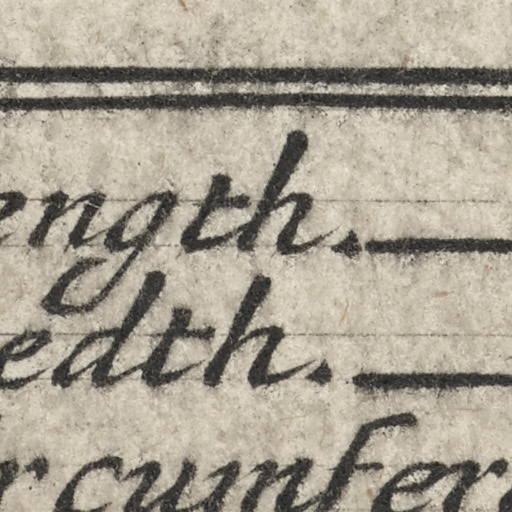 ength.
edth.
rcumfer